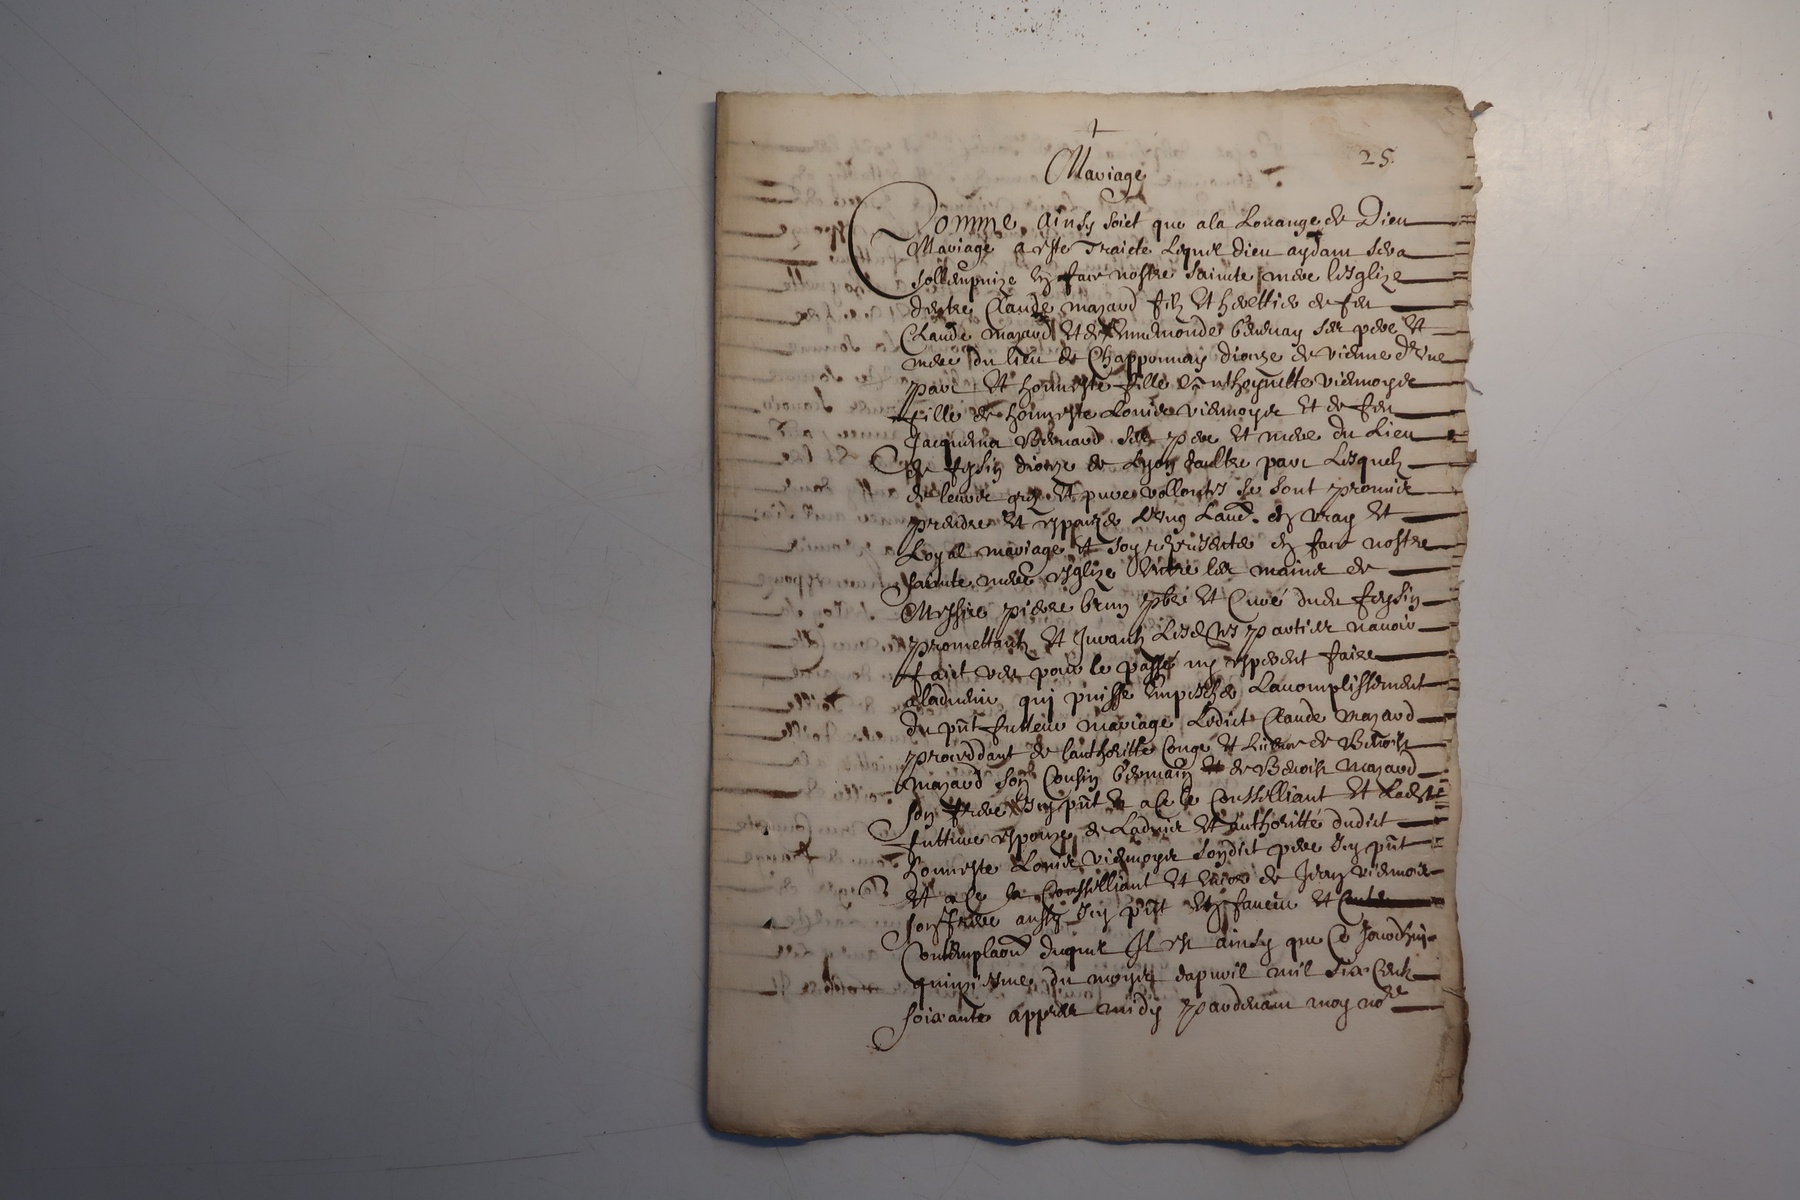 †
25
Mariage
Comme Ainsy soict que a la Louange de Dieu
Mariage a este Traicte Lequel dieu aydant sera
sollempnize en face nostre saincte mere Lesglize
dentre Claude mazard filz et herettier de feu
Claude mazard et de Ennemonde Ses pere et
mere du lieu de Chapponnay dioceze de vienne d'une
part Et honneste fille Anthoynette viemoyer
fille de honneste Louis viemoyer et de feu
Jacquema Bernard ses pere et mere du Lieu
de feysin dioceze de Lyon daultre part Lesquelz
de leurs grez et pure vollontes se sont promis
prendre et espouzer L'ung Laud. en vray et
Loyal mariage et soy represente en face nostre
saincte mere esglize Entre les mains de
Messire pierre brun pbre et Curé dudit feysin
promettant et Jurant Lesdites parties navoir
faict rien pour le passé ny esperent faire
a ladvenir qui puisse empescher Laccomplissement
du pnt futteur mariage Ledict Claude mazard
proceddant de lauthoritte Conge et Licence de Benoist
mazard son Cousin Germain et de Benoist Mazard
son frere Icy pnt et a Ce le Conseilliant Et Ladite
futture espouze de Ladvis et authoritté dudict
honneste Louis viemoyer sondict pere Icy pnt
et a Ce la Conseilliant et encor de Jean viemoier
son frere aussy Icy pnt En faveur et
Contemplaon duquel Il est ainsy que Ce Jourdhuy
quinziesme du moys dapvril mil six Centz
soixante appres midy Pardevant moy nore